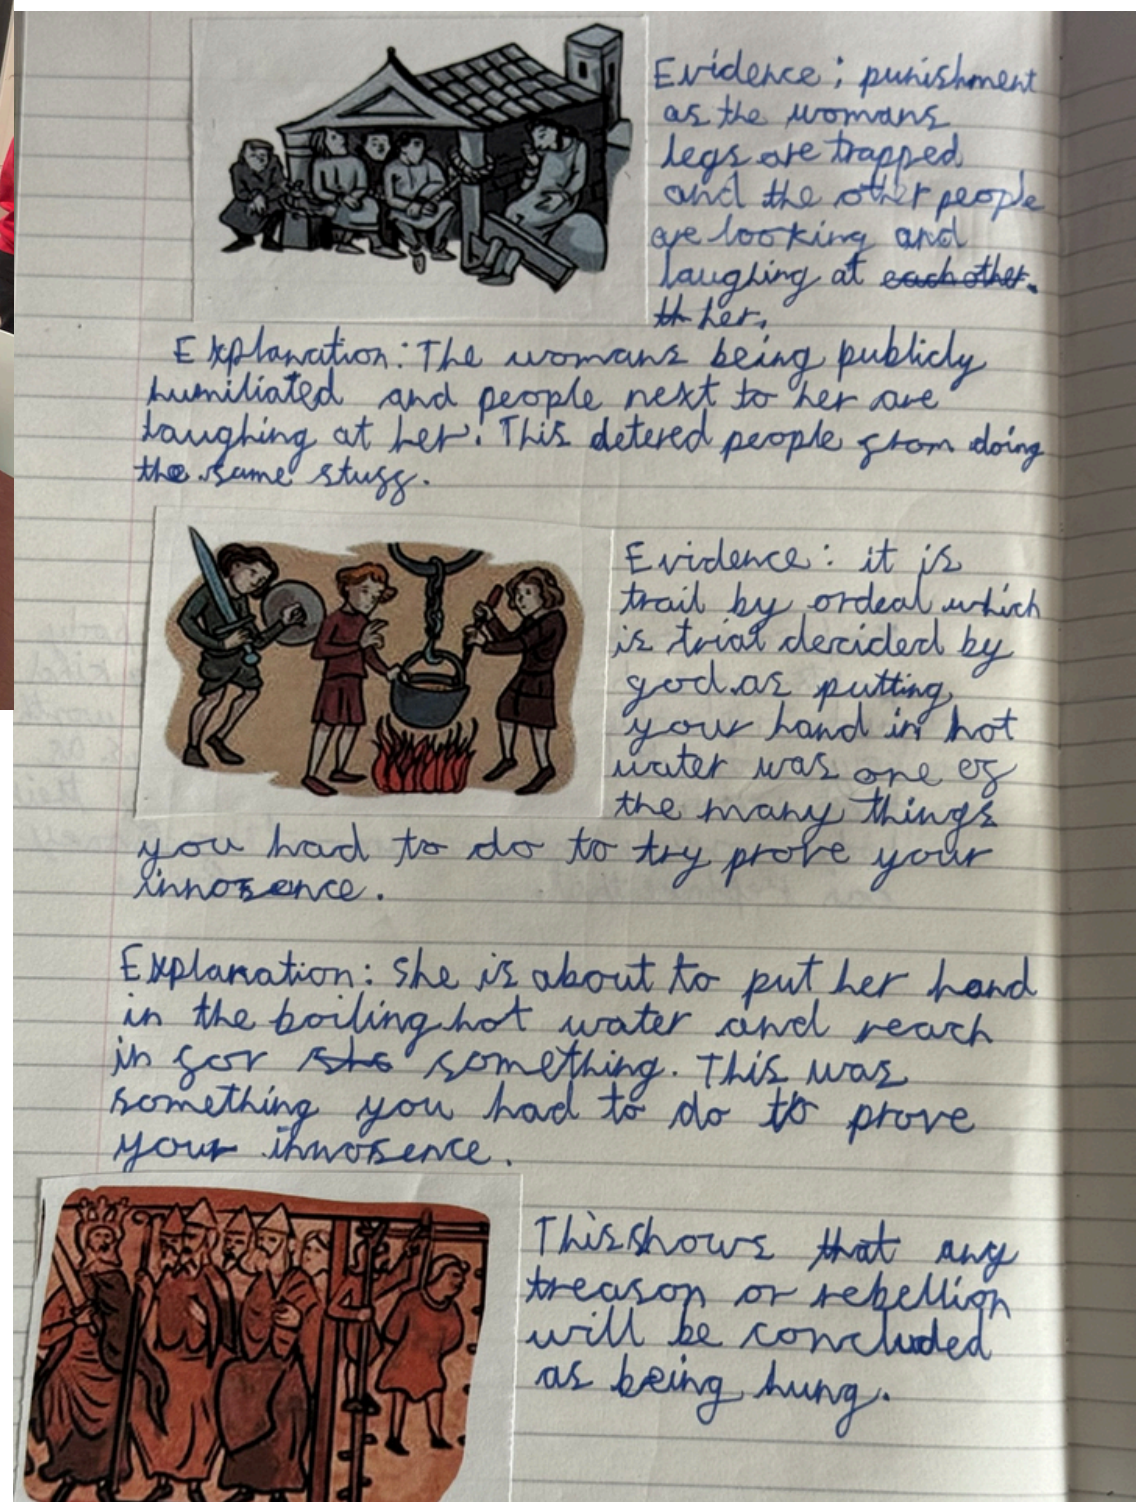 Evidence; punishment
as the womans
legs are trapped
and the other people
are looking and
laughing at each other.
th her.
Explanation: The womans being publicly
humiliated and people next to her are
laughing at her. This detered people from doing
the same stuff.
Evidence: it is
trail by ordeal which
is trial decided by
god as putting
your hand in hot
water was one of
the many things
you had to do to try prove your
innosence.
Explanation: She is about to put her hand
in the boiling hot water and reach
in for she something. This was
something you had to do to prove
your innosence.
This shows that any
treason or rebellion
will be concluded
as being hung.